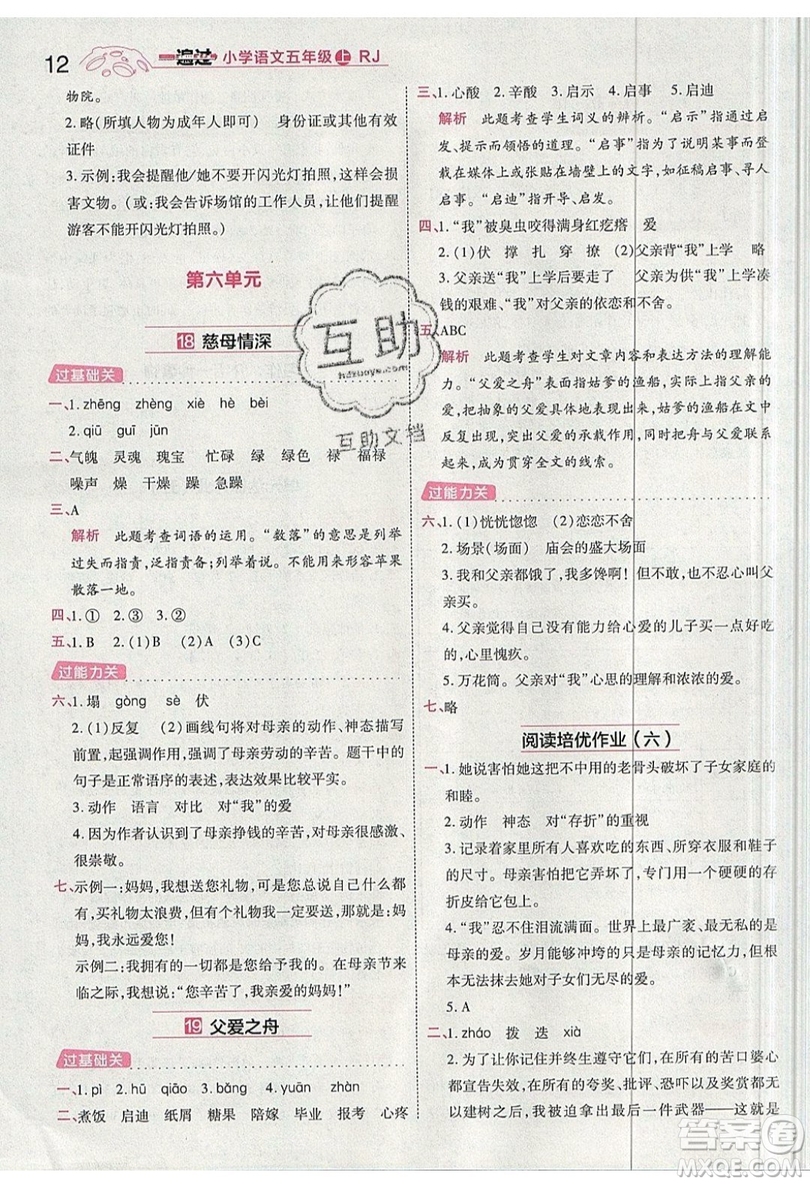 12
一遍过 小学语文五年级 上 RJ
物院。
2.略(所填人物为成年人即可) 身份证或其他有效
证件
3.示例:我会提醒他/她不要开闪光灯拍照,这样会损
害文物。(或:我会告诉场馆的工作人员,让他们提醒
游客不能开闪光灯拍照。)
第六单元
18 慈母情深
过基础关
一、1. zhēng zhèng xiè hè bèi
2. qiū guī jūn
二、气魄 灵魂 瑰宝 忙碌 绿 绿色 禄 福禄
噪声 燥 干燥 躁 急躁
三、A
解析 此题考查词语的运用。“数落”的意思是列举
过失而指责,泛指责备;不能用来形容阳光、苹果
散落一地。
四、1.① 2.③ 3.②
五、1. B 2.(1)B (2)A (3)C
过能力关
六、1.塌 gòng sè 伏
2.(1)反复 (2)画线句将对母亲的动作、神态描写
前置,起到强调母亲劳动的辛苦的作用。题干中的
句子是正常语序的表述,表达效果不强烈。
3.动作 语言 对比 对“我”的爱
4.因为作者认识到了母亲挣钱的辛苦,对母亲很感激、
很崇敬。
七、示例一:妈妈,我想送您礼物,可我知道自己什么都
有,买礼物太浪费,但有一个礼物是独一无二的:妈
妈,我永远爱您!
示例二:我拥有的一切都是妈妈给予的,在母亲节来
临之际,我想说:“您辛苦了,亲爱的妈妈!”
19 父爱之舟
过基础关
一、1. pì 2. hū qiāo 3. bǎng 4. yuān zhàn
二、煮饭 启迪 纸屑 糖果 陪嫁 毕业 报考 心疼
三、1.心酸 2.辛酸 3.启示 4.启事 5.启迪
解析 此题考查学生词义的辨析。“启示”指通过启
发、提示而领悟的道理。“启事”指为了说明某事而登
在媒体上或张贴在墙壁上的文字,如征稿启事、寻人
启事。“启迪”指开导、启发。
四、1.“我”被臭虫咬得满身红疙瘩 爱
2.(1)伏 撑 扎 穿 撩 (2)父亲背“我”上学 略
3.父亲送“我”上学后要走了 父亲为供“我”上学凑
钱的艰难、“我”对父亲的依恋和不舍。
五、ABC
解析 此题考查学生对文章内容和表达方法的理解能
力。“父爱之舟”表面意思指姑爹的渔船,这样命题,
把抽象的父爱具体地体现出来;姑爹的渔船,在文中
反复出现,成为父爱的承载作用,同时与父爱联系起
来,成为贯穿全文的线索。
过能力关
六、1.(1)恍恍惚惚 (2)恋恋不舍
2.场景(场面) 庙会的盛大场面
3.我和父亲都饿了,我多馋啊!但我不敢,也不忍心叫父
亲买。
4.父亲觉得没有能力给心爱的儿子买一碗热豆腐脑,
心里愧疚。
5.万花筒。父亲对“我”心思的理解和浓浓的爱。
七、略
阅读培优作业(六)
一、1.她说害怕她这把不中用的老骨头破坏了子女家庭的
和睦。
2.动作 神态 对“存折”的重视
3.记录着家里所有人喜欢吃的东西、所穿衣服和鞋子
的尺寸。母亲害怕把它弄坏了,专门用一个硬硬的存
折皮给它包上。
4.“我”忍不住泪流满面。世界上最广袤、最无私的是
母亲的爱。岁月能够冲垮的只是母亲的记忆力,但它
无法、无法阻挡她对子女们无尽的爱。
5. A
二、1. zháo 拨 迭 xià
2.为了让你记住并终生遵守这些家规,在所有的苦口婆心
都宣告失效,在所有的夸奖、批评、恐吓以及奖赏都无
以建树之后,我被迫拿出最后一件武器——这就是
互助
hdzuoye.com
互助文档
答案圈
MXQE.COM